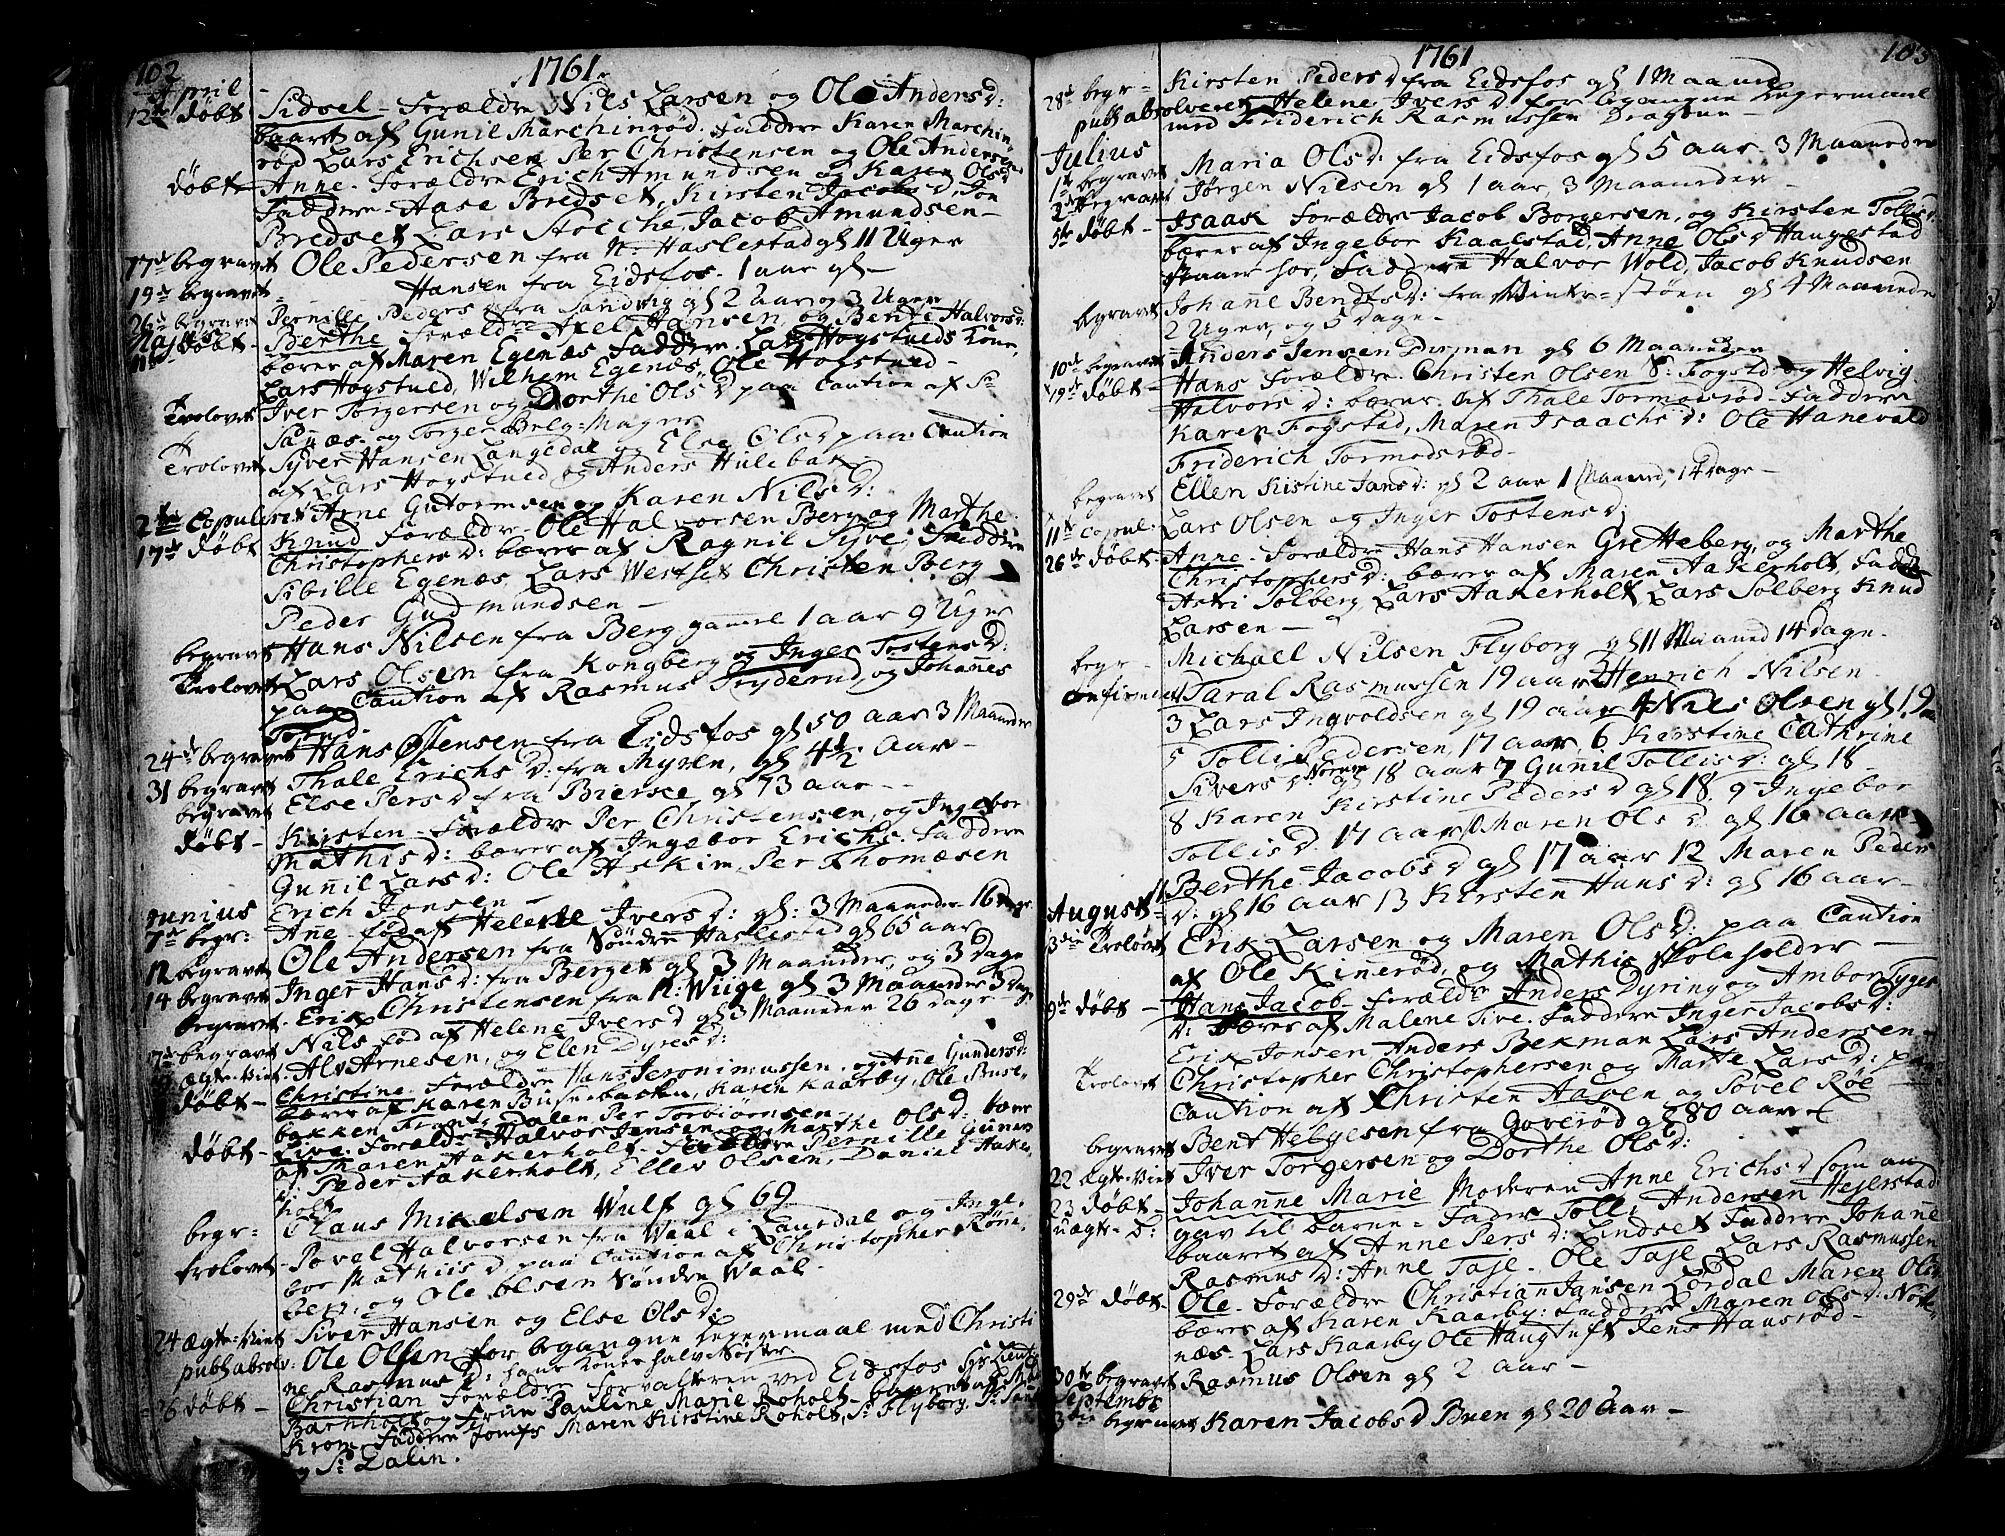 102
1761
April
12te døbt Sidsel - Forældre Nils Larsen og Ole Andersd:
baaret af Gunil Marchinrød. Faddere Karen Marchin-
rød Lars Erichsen Per Christensen og Ole Andersen
døbt Anne. Forældre Erich Amundsen og Karen Olsd
Faddere - Aase Bredset, Kirsten Jacobsd, Jon
Bredset Lars Stocche, Jacob Amundsen -
17de begravet Ole Pedersen fra N: Haslestad gl 11 Uger
19de begravet Hansen fra Eidsfos. 1 aar gl -
26de begravet Pernille Peders fra Sandvig gl 2 Aar og 3 Uger
Majus
11te døbt - Berthe Forældre Axel Hansen og Bente Halvorsd:
bærer af Maren Egenæs Faddere. Lars Hogstveds Kone,
Lars Hogstved, Wilhem Egenæs, Ole Hogstved -
Trolovet Iver Torgersen og Dorthe Olsd paa Caution af Sr
og Torger Belg-Mager
Trolovet Syver Hansen Langedal og Else Olsd paa Caution
af Lars Hogstved og Anders Hulebak.
2den Copuleret Arne Gutormsen og Karen Nilsd:
17de døbt Knud Forældre - Ole Halvorsen Berg og Marthe
Christophersd: bærer af Ragnil Syve: Faddere
Sibille Egenæs, Lars Westset Christen Berg
Peder Gudmundsen -
begravet Hans Nilsen fra Berg gamel 1 aar 9 Uger
Trolovet Lars Olsen fra Kongberg og Inger Tostensd:
paa Caution af Rasmus Fryderud, og Johanes
24de begravet Hans Olensen fra Eidsfos gl 50 aar 3 Maaneder
31 begravet Thale Erichsd: fra Myren, gl 4½ Aar -
begravet Else Persd fra Biersee gl 73 aar -
døbt - Kirsten - Forældre Per Christensen, og Ingebor
Mathisd: bærer af Ingebor Erichs. Faddere
Gunil Larsd: Ole Askim, Per Thomæsen
Erich Jonsen -
Junius
7de begr: Ane - fød af Helene Iversd: gl: 3 Maaneder 16 Dage
12 begravet Ole Andersen fra Søndre Haslestad gl 65 aar
14 begravet Inger Hansd: fra Berget gl 3 Maaneder, og 3 Dage
begravet. Erik Christensen fra N: Wiige gl 3 Maaneder 3 Dage
begravet Nils fød af Helene Iversd gl 3 Maaneder 26 Dage -
Ægte-Viet Alv Arnesen, og Elen Dyresd:
døbt - Christine. Forældre Hans Ieronimussen, og Ane Gundersd:
bærer af Karen Busnebacken, Karen Kaarby, Ole Busne-
bakken Frants Dalen Per Torbiørnsen
døbt - Live. Forældre Halvor Jensen og Marthe Olsd: bærer
af Maren Aakerholt - Faddere Pernille Gunars
Peder Aakerholt, Ellev Olsen, Daniel Aaker-
holt
begr: Claus Mikelsen Wulf gl 69
trolovet. Povel Halvorsen fra Waal i Laurdal og Inge-
bor Mathiisd, paa Caution af Christopher Rønne-
bek, og Ole Olsen Søndre Waal.
24 ægte-Viet Siver Hansen og Else Olsd:
publ: absolv: Ole Olsen for begangne Leyermaal med Christi-
ne Rasmusd: hans Kones halv Søster.
26 døbt - Christian Forældre Forvalteren ved Eidsfos Sr
Barnholt og Frue Pauline Marie Roholt - baaret af
Krom. Faddere Jomfr Maren Kirstine Roholt, Sr Flyborg, Sr
og Sr Dalin.
1761
103
28de begr - Kirsten Pedersd fra Eidsfos gl 1 Maaned
publ: absolveret Helene Iversd for begangne Leyermaal
med Friderich Rasmussen Dragun -
Julius
1te begravet Maria Olsd: fra Eidsfos gl 5 aar 3 Maaneder
2den begravet Jørgen Nilsen gl 1 aar, 3 Maaneder -
5te døbt - Isaak Forældre Jacob Borgersen, og Kirsten Tollisd:
bærer af Ingebor Kaalstad, Anne Olsd Haugestad
staar hos, Faddere Halvor Wold, Jacob Knudsen
begravet Johane Bendtsd: fra Winter-støen gl 4 Maaneder
2 Uger, og 5 Dage -
10de begravet Anders Jensen Dirman gl 6 Maaneder
19de døbt - Hans Forældre. Christen Olsen S: Fogstad og Helvig
Halvorsd: bærer af Thale Tormodsrød - Faddere
Karen Fogstad, Maren Isaachsd: Ole Hanevald
Friderich Tormodsrød -
begravet Ellen Kistine Jansd: gl 2 aar 1 Maaned, 14 Dage -
11te Copul: Lars Olsen og Inger Tostensd:
26de døbt - Anne - Forældre Hans Hansen Gretteberg, og Marthe
Christophersd: bærer af Maren Aakerholt, Faddere
Astri Solberg, Lars Aakerholt, Lars Solberg Knud
Larsen -
begr - Michael Nilsen Flyborg gl 11 Maaned 14 Dage.
Confirmeret 1 Taral Rasmussen 19 aar 2 Henrich Nilsen
3 Lars Ingvoldsen gl 19 aar 4 Niels Olsen gl 19
5 Tolli Pedersen, 17 aar, 6 Kirstine Cathrine
Siversd: gl 18 aar 7 Gunil Tollisd: gl 18 -
8 Karen Kirstine Pedersd gl 18, 9 Ingebor
Tollisd 17 aar 10 Maren Olsd gl 16 aar -
11 Berthe Jacobsd gl 17 aar 12 Maren Peders
d: gl 16 aar 13 Kirsten Hansd: gl 16 aar -
August
3die Troloved Erik Larsen og Maren Olsd: paa Caution
af Ole Kinerød, og Mathis Skoleholder -
9de døbt - Hans Jacob - Forældre Anders Dyring og Ambor Tygges
d: bærer af Malene Sive. Faddere Inger Jacobsd:
Erik Jonsen Anders Bekman Lars Andersen -
Trolovet Christopher Christophersen og Marte Larsd: paa
Caution af Christen Haven og Povel Røe
begravet Bent Helgesen fra Goverød gl 80 aar
22 ægte-Viet Iver Torgersen og Dorthe Olsd:
23 døbt - Johanne Marie Moderen Anne Erichsd som an
uægte - B: gav til Barne-Fader Tolli Andersen Hejerstad
baaret af Anne Persd: Lindset Faddere Johane
Rasmusd: Anne Taje - Ole Taje Lars Rasmussen
29de døbt - Ole - Forældre Christian Jansen Lordal Maren Olsd
bærer af Karen Kaarby: Faddere Maren Olsd: Nøtte-
næs - Lars Kaarby Ole Haugtuft Jens Hausrød -
30te begravet Rasmus Olsen gl 2 aar -
September
3die begravet Karen Jacobsd Buen gl 20 Aar -